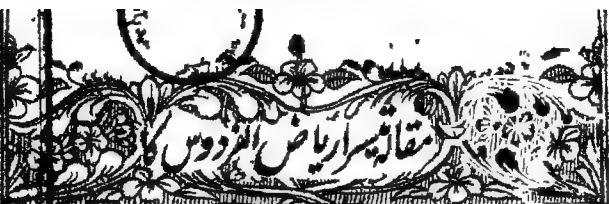 مقالہ تیسرا ریاض الفردوس کا